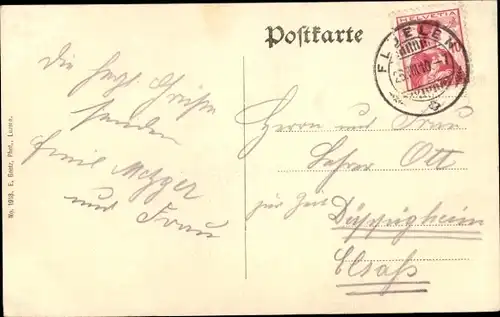 Postkarte
HELVETIA
FLÜELEN
Die herzl. Grüße
senden
Emil Metzger
und Frau
Herrn und Frau
Lehrer Ott
zur Zeit
Düppigheim
Elsaß
No. 1913. E. Goetz, Phot., Luzern.